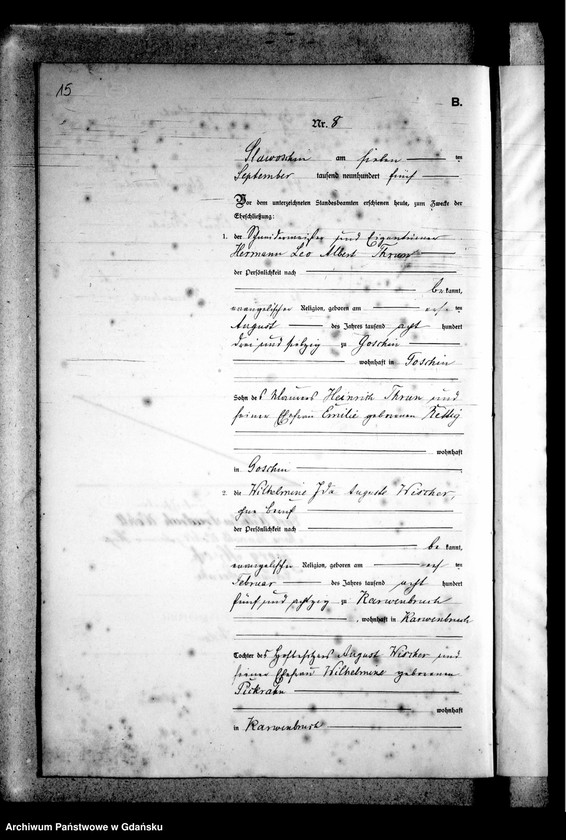 15
B.
Nr. 8
Slawoschin am sieben ten
September tausend neunhundert fünf
Vor dem unterzeichneten Standesbeamten erschienen heute, zum Zwecke der
Eheschließung:
1. der Schneidermeister und Eigentümer
Hermann Leo Albert Thrun
der Persönlichkeit nach
be kannt,
evangelischer Religion, geboren am ten
August des Jahres tausend acht hundert
drei und zu Goschin
wohnhaft in Goschin
Sohn des Maurers Heinrich Thrun und
seiner Ehefrau Emilie geborenen Rettig
wohnhaft
in Goschin
2. die Wilhelmine Ida Auguste Wischer,
ohne Beruf
der Persönlichkeit nach
be kannt,
evangelischer Religion, geboren am ten
Februar des Jahres tausend acht hundert
fünf und achtzig zu Karwenbruch
, wohnhaft in Karwenbruch
Tochter des Hofbesitzers August Wischer und
seiner Ehefrau Wilhelmine geborenen
Pieckrahn
wohnhaft
in Karwenbruch
Archiwum Państwowe w Gdańsku